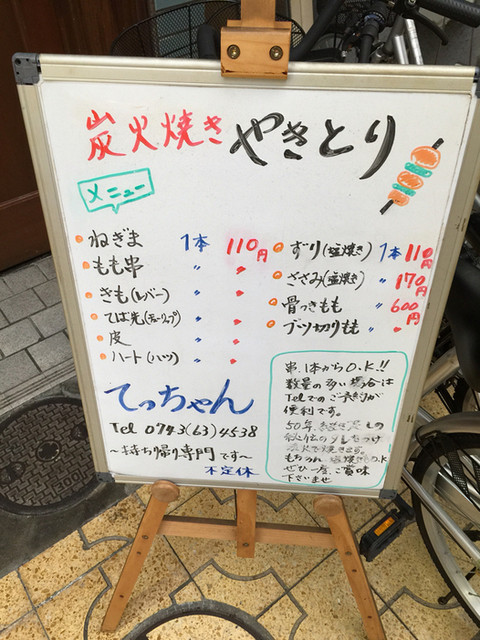 炭火焼き やきとり
メニュー
ねぎま 1本 110円
もも串 〃 〃
きも(レバー) 〃 〃
てば先(チューリップ) 〃 〃
皮 〃 〃
ハート(ハツ) 〃 〃
ずり(塩焼き) 1本 110円
ささみ(塩焼き) 〃 170円
骨つきもも 〃 600円
ブツ切りもも 〃 〃
てっちゃん
Tel 0743(63)4538
〜持ち帰り専門です〜
不定休
串、1本からO.K!!
数量の多い場合は
Telでのご予約が
便利です。
50年、しの
伝のタレをつけ
炭火で焼きます。
もちろん塩焼きもO.K
ぜひ一度、ご賞味
下さいませ